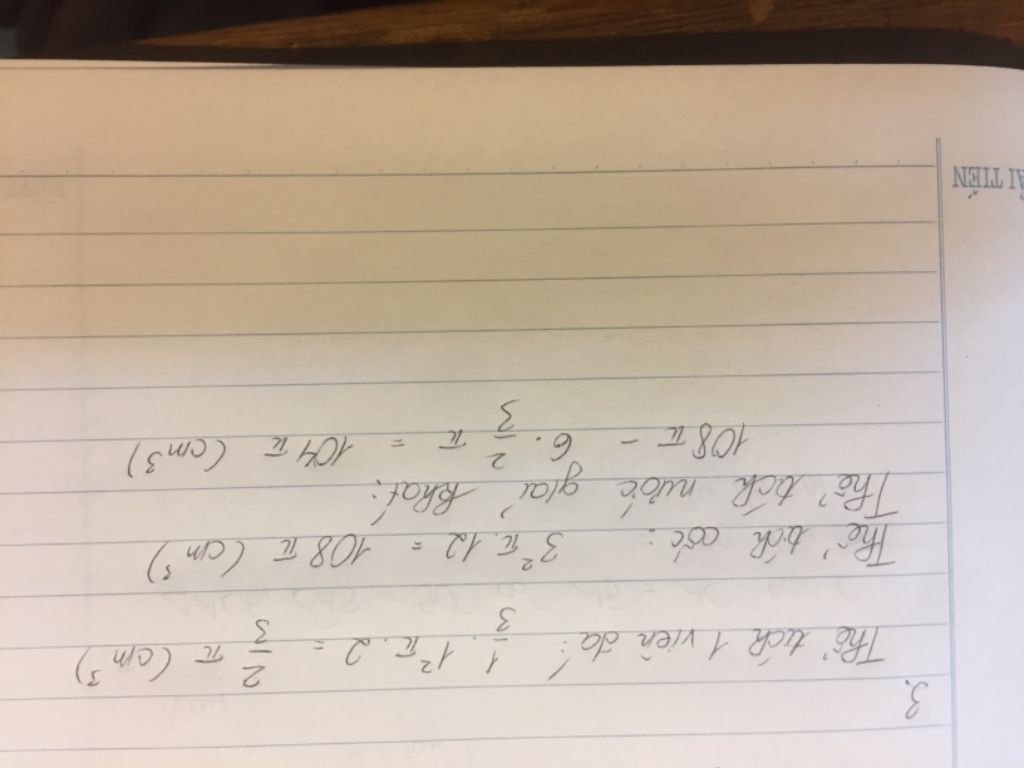 3.
Thể tích 1 viên đá: 1/3 . 1² π . 2 = 2/3 π (cm³)
Thể tích cốc: 3² π . 12 = 108 π (cm³)
Thể tích nước giải khát:
108 π - 6 . 2/3 π = 104 π (cm³)
ẢI TIẾN